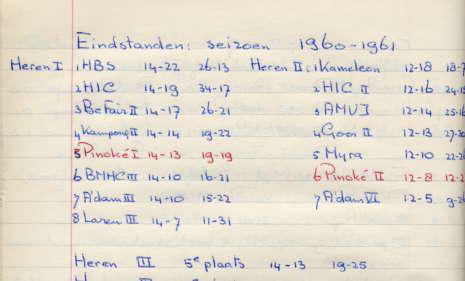 Eindstanden: seizoen 1960-1961
Heren I 1 HBS 14-22 26-13 Heren II: 1 Kameleon 12-18
2 HIC 14-19 34-17 2 HIC II 12-16
3 Be Fair II 14-17 26-21 3 AMVJ 12-14
4 Kampong II 14-14 19-22 4 Gooi II 12-13
5 Pinoké I 14-13 19-19 5 Myra 12-10
6 BMHC III 14-10 16-21 6 Pinoké II 12-8
7 A'dam III 14-10 15-22 7 A'dam VI 12-5
8 Laren III 14-7 11-31
Heren III 5e plaats 14-13 19-25